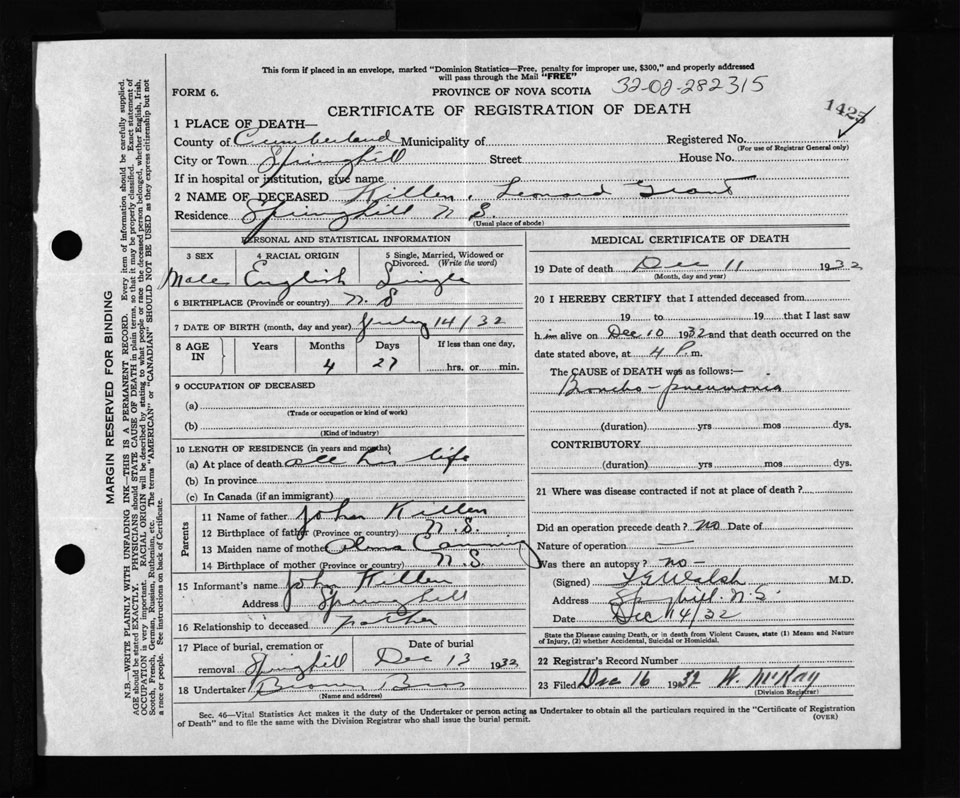 This form if placed in an envelope, marked "Dominion Statistics—Free, penalty for improper use, $300," and properly addressed
will pass through the Mail "FREE"
FORM 6. PROVINCE OF NOVA SCOTIA 32-02-282315
CERTIFICATE OF REGISTRATION OF DEATH
1 PLACE OF DEATH—
County of Cumberland Municipality of Registered No.
(For use of Registrar General only)
City or Town Springhill Street House No.
If in hospital or institution, give name
2 NAME OF DECEASED Killen, Leonard Grant
Residence Springhill N S.
(Usual place of abode)
PERSONAL AND STATISTICAL INFORMATION
3 SEX 4 RACIAL ORIGIN 5 Single, Married, Widowed or
Divorced. (Write the word)
Male English Single
6 BIRTHPLACE (Province or country) N. S
7 DATE OF BIRTH (month, day and year) July 14/32
8 AGE IN Years Months Days If less than one day,
4 27 hrs. or min.
9 OCCUPATION OF DECEASED
(a)
(Trade or occupation or kind of work)
(b)
(Kind of industry)
10 LENGTH OF RESIDENCE (in years and months)
(a) At place of death all his life
(b) In province
(c) In Canada (if an immigrant)
Parents
11 Name of father John Killen
12 Birthplace of father (Province or country) N.S.
13 Maiden name of mother Alma
14 Birthplace of mother (Province or country) N.S
15 Informant's name John Killen
Address Springhill
16 Relationship to deceased Father
17 Place of burial, cremation or Date of burial
removal Springhill Dec 13 1932
18 Undertaker Brown Bros
(Name and address)
MEDICAL CERTIFICATE OF DEATH
19 Date of death Dec 11 1932
(Month, day and year)
20 I HEREBY CERTIFY that I attended deceased from
19 to 19 that I last saw
him alive on Dec 10 1932 and that death occurred on
date stated above, at 4 P.m.
The CAUSE of DEATH was as follows:—
Broncho-pneumonia
(duration) yrs mos dys.
CONTRIBUTORY
(duration) yrs mos dys.
21 Where was disease contracted if not at place of death?
Did an operation precede death? no Date of
Nature of operation —
Was there an autopsy? no -
(Signed) Walsh M.D.
Address Springhill N.S.
Date Dec 14/32
State the Disease causing Death, or in death from Violent Causes, state (1) Means and Nature
of Injury, (2) whether Accidental, Suicidal or Homicidal.
22 Registrar's Record Number
23 Filed Dec 16 1932 W. McKay
(Division Registrar)
Sec. 46—Vital Statistics Act makes it the duty of the Undertaker or person acting as Undertaker to obtain all the particulars required in the "Certificate of Registration
of Death" and to file the same with the Division Registrar who shall issue the burial permit.
(OVER)
MARGIN RESERVED FOR BINDING
N.B.—WRITE PLAINLY WITH UNFADING INK—THIS IS A PERMANENT RECORD. Every item of information should be carefully supplied.
AGE should be stated EXACTLY. PHYSICIANS should STATE CAUSE OF DEATH in plain terms, so that it may be properly classified. Exact statement of
OCCUPATION is very important. RACIAL ORIGIN will be described by stating to what people or race the deceased person belonged, whether English, Irish,
Scotch, French, German, Russian, Ruthenian, etc. The terms "AMERICAN" or "CANADIAN" SHOULD NOT BE USED as they express citizenship but not
a race or people. See instructions on back of Certificate.